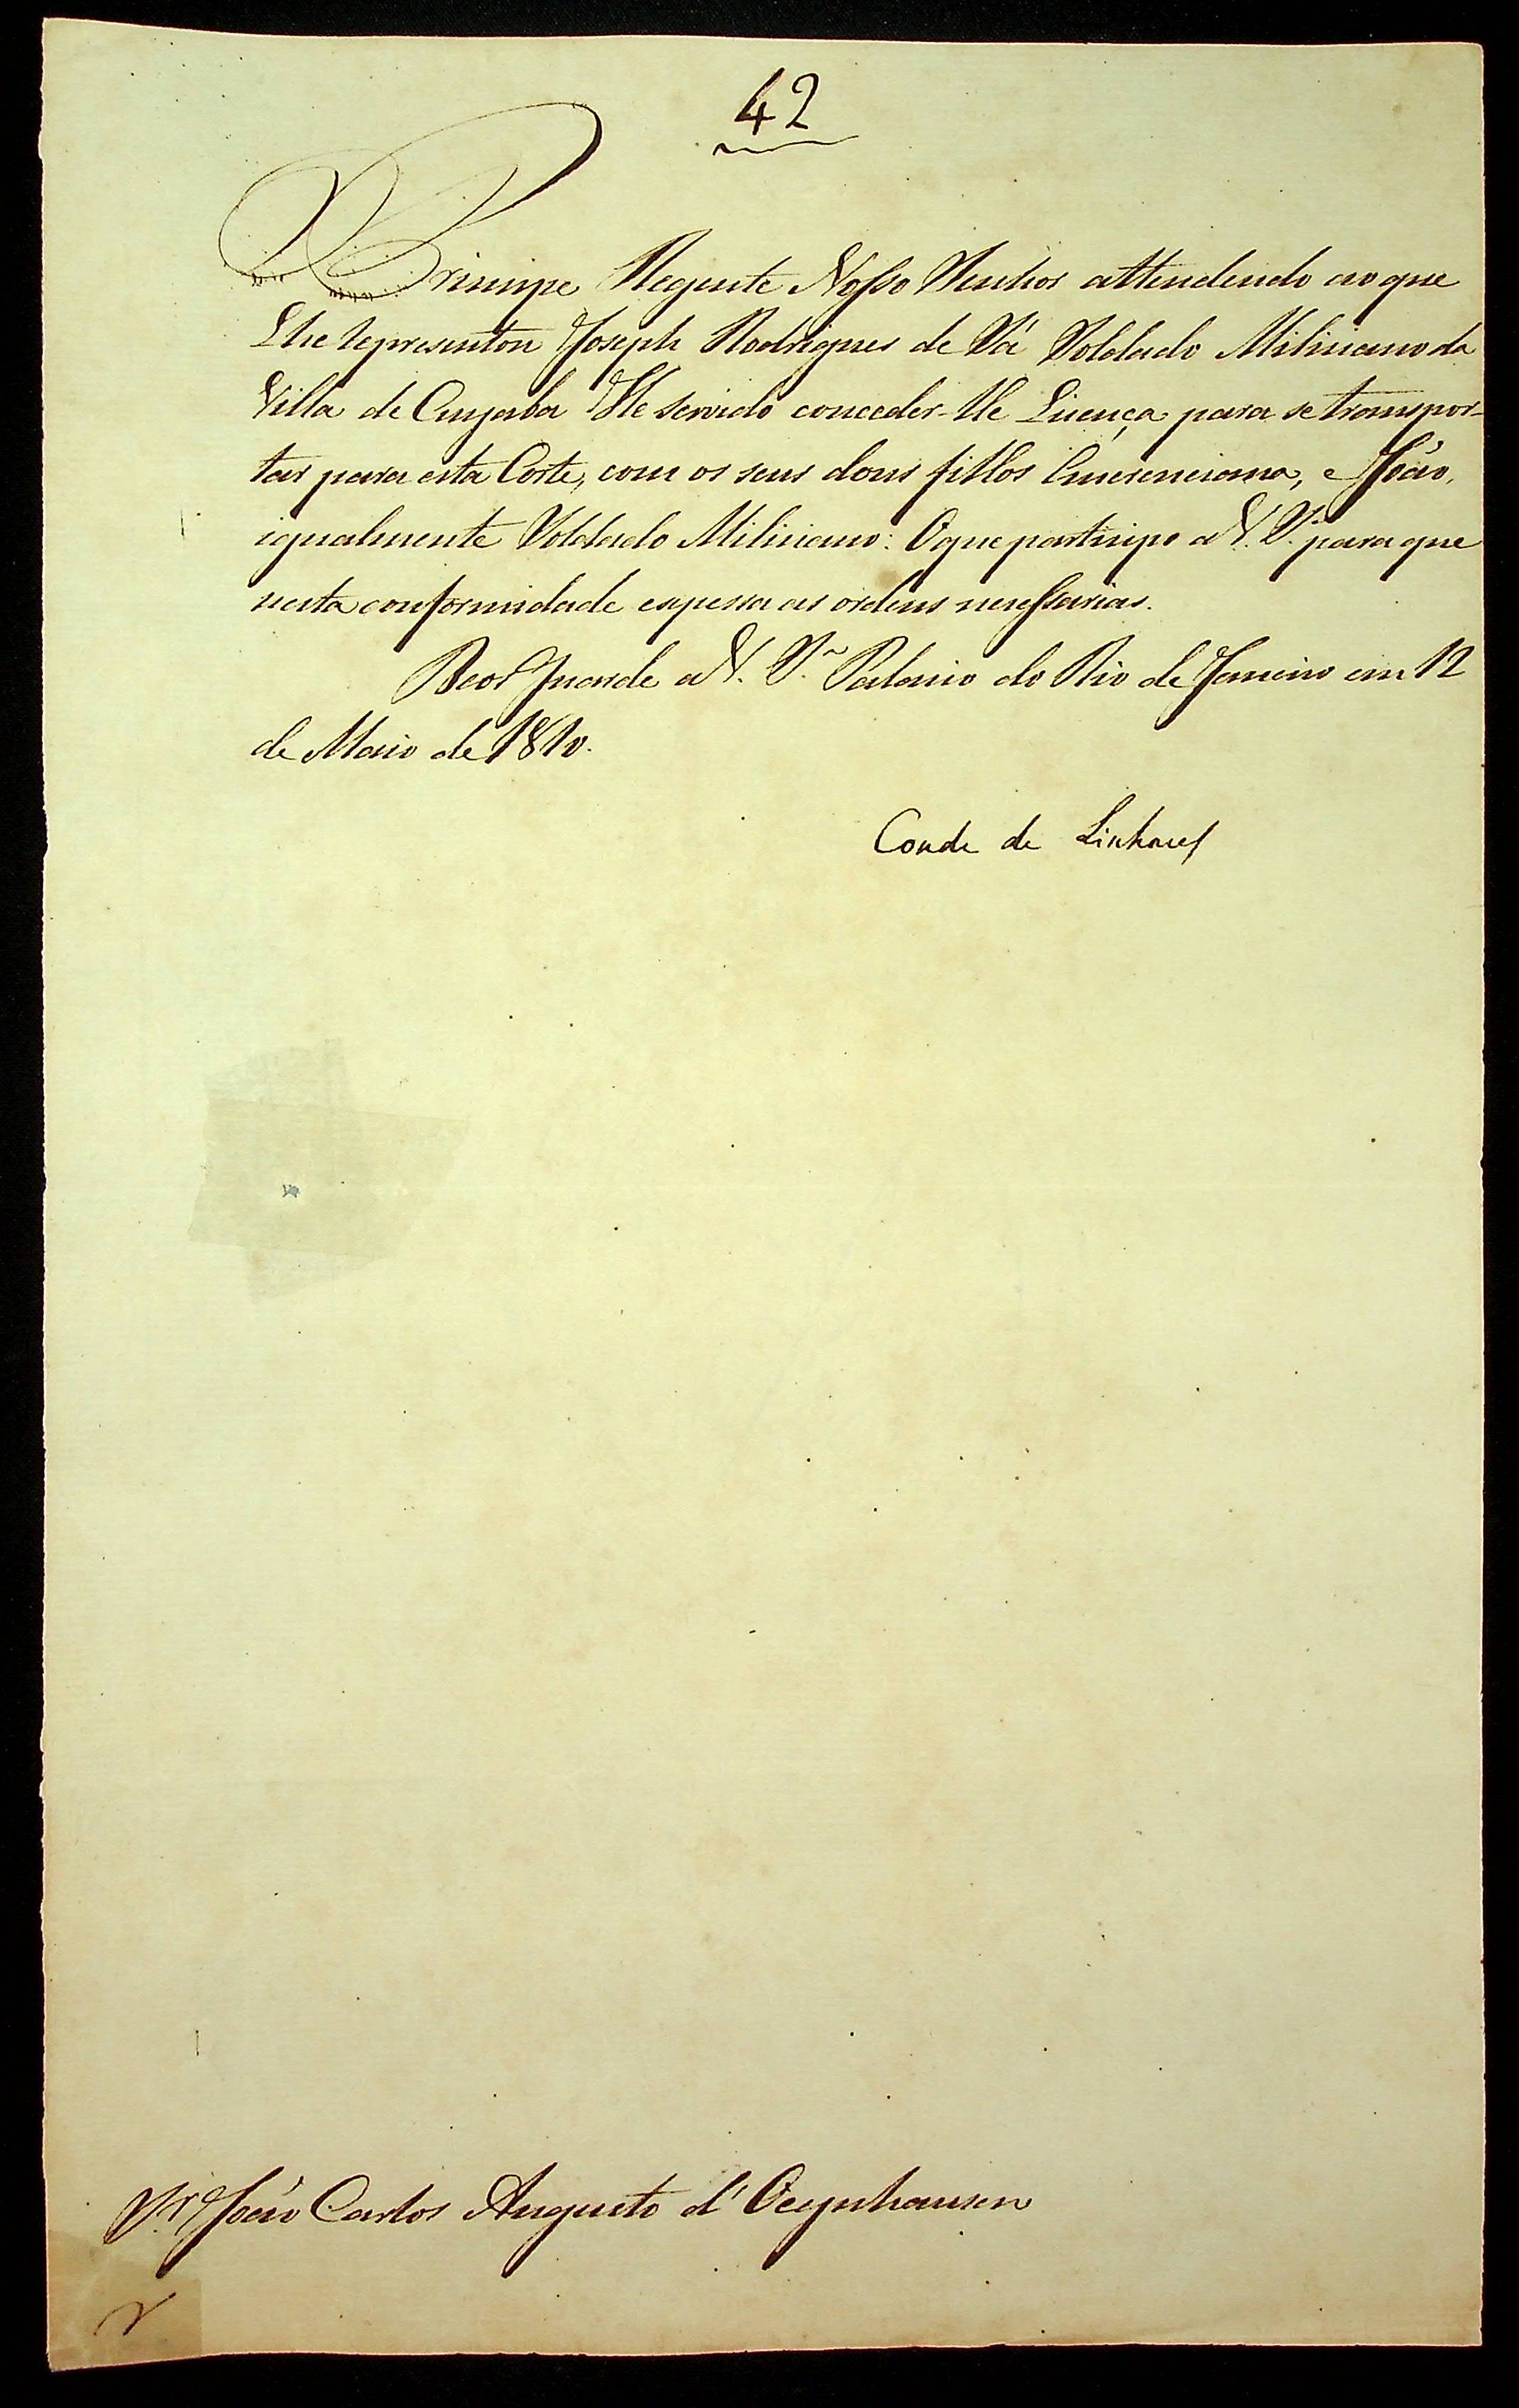 42
O Principe Regente Nosso Senhor attendendo ao que
Lhe representou Joseph Rodrigues de Sá Soldado Miliciano da
Villa de Cuyaba He servido conceder-lhe Licença para se transpor-
tar para esta Corte, com os seus dous filhos Emerenciana, e João,
igualmente Soldado Miliciano: O que participo a V. S.ª para que
nesta conformidade expessa as ordens necessarias.
Deos Guarde a V. S.ª Palacio do Rio de Janeiro em 12
de Maio de 1810.
Conde de Linhares
S.r João Carlos Augusto d'Oeynhausen